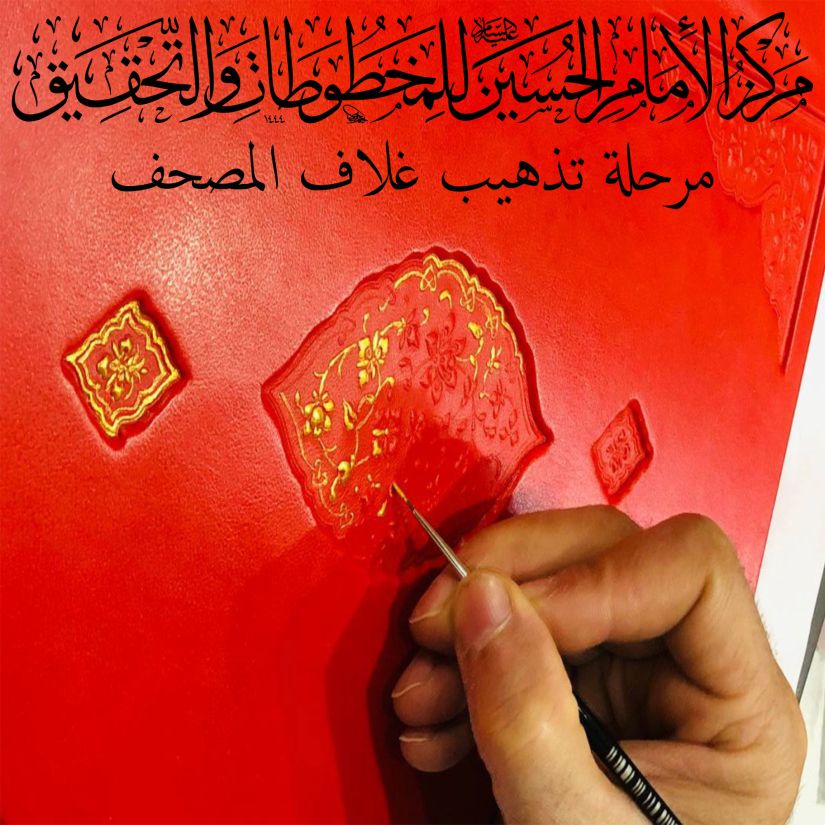 مَركَزُ الأِمَامِ الحُسَينِ للمَخطُوطَاتِ وَالتَّحْقِيق
١٤٤٤
مرحلة تذهيب غلاف المصحف